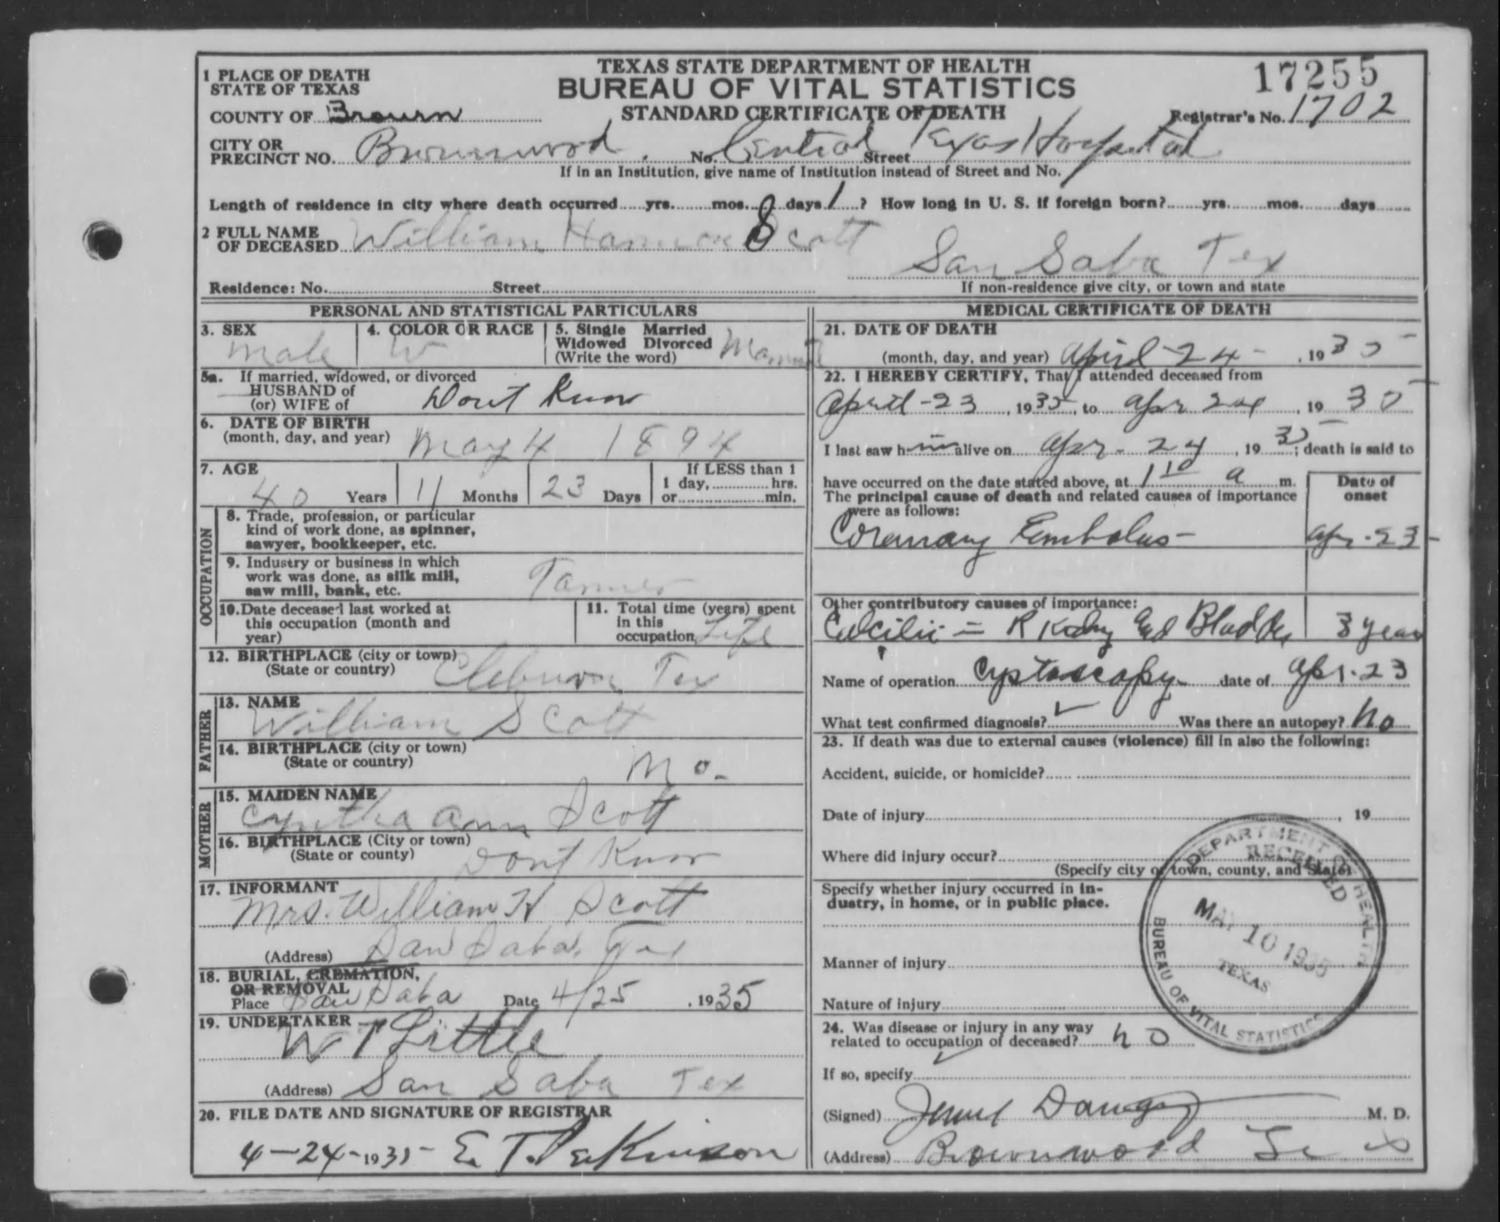 TEXAS STATE DEPARTMENT OF HEALTH
BUREAU OF VITAL STATISTICS
STANDARD CERTIFICATE OF DEATH
17255
Registrar's No. 1702
1 PLACE OF DEATH
STATE OF TEXAS
COUNTY OF Brown
CITY OR
PRECINCT NO. Brownwood. No. Central Texas Hospital Street
If in an Institution, give name of Institution instead of Street and No.
Length of residence in city where death occurred yrs. mos. days 1 ? How long in U. S. if foreign born? yrs. mos. days
2 FULL NAME
OF DECEASED William Scott
San Saba Tex
Residence: No. Street
If non-residence give city, or town and state
PERSONAL AND STATISTICAL PARTICULARS
3. SEX male
4. COLOR OR RACE W
5. Single Married
Widowed Divorced
(Write the word)
5a. If married, widowed, or divorced
HUSBAND of
(or) WIFE of Dont Know
6. DATE OF BIRTH
(month, day, and year) May 4 1894
7. AGE
40 Years 11 Months 23 Days
If LESS than 1
1 day, hrs.
or min.
OCCUPATION
8. Trade, profession, or particular
kind of work done, as spinner,
sawyer, bookkeeper, etc.
9. Industry or business in which
work was done, as silk mill,
saw mill, bank, etc.
10. Date deceased last worked at
this occupation (month and
year)
11. Total time (years) spent
in this
occupation Life
12. BIRTHPLACE (city or town)
(State or country) Tex
FATHER
13. NAME
William Scott
14. BIRTHPLACE (city or town)
(State or country) Mo.
MOTHER
15. MAIDEN NAME
Cyntha Ann Scott
16. BIRTHPLACE (City or town)
(State or county) Dont Know
17. INFORMANT
Mrs. William H Scott
(Address) San Saba, Tex
18. BURIAL, CREMATION,
OR REMOVAL
Place San Saba Date 4/25, 1935
19. UNDERTAKER
W T Little
(Address) San Saba Tex
20. FILE DATE AND SIGNATURE OF REGISTRAR
4-24-1935 E. T. Perkinson
MEDICAL CERTIFICATE OF DEATH
21. DATE OF DEATH
(month, day, and year) April-24-, 1935
22. I HEREBY CERTIFY, That I attended deceased from
April-23, 1935, to Apr 24, 1935
I last saw him alive on Apr. 24, 1935; death is said to
have occurred on the date stated above, at 1 10 a m.
The principal cause of death and related causes of importance
were as follows:
Date of
onset
Coronary Embolus- Apr.-23-
Other contributory causes of importance:
R Kidney and Bladder 3 year
Name of operation Cystoscopy date of Apr.-23
What test confirmed diagnosis? ✓ Was there an autopsy? No
23. If death was due to external causes (violence) fill in also the following:
Accident, suicide, or homicide?
Date of injury , 19
Where did injury occur?
(Specify city or town, county, and State)
Specify whether injury occurred in in-
dustry, in home, or in public place.
Manner of injury
Nature of injury
24. Was disease or injury in any way
related to occupation of deceased? no
If so, specify
(Signed) M. D.
(Address) Brownwood
DEPARTMENT OF HEALTH
RECEIVED
MAY 10 1935
TEXAS
BUREAU OF VITAL STATISTICS